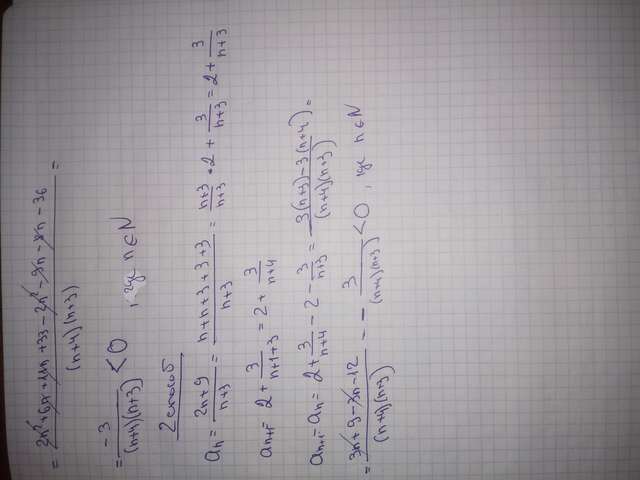 = (2n² + 6n + 11n + 33 - 2n² - 9n - 8n - 36) / ((n+4)(n+3)) =
= -3 / ((n+4)(n+3)) < 0 , где n ∈ N
2 способ
aₙ = (2n+9)/(n+3) = (n+n+3+3+3)/(n+3) = (n+3)/(n+3) · 2 + 3/(n+3) = 2 + 3/(n+3)
aₙ₊₁ = 2 + 3/(n+1+3) = 2 + 3/(n+4)
aₙ₊₁ - aₙ = 2 + 3/(n+4) - 2 - 3/(n+3) = (3(n+3) - 3(n+4))/((n+4)(n+3)) =
= (3n + 9 - 3n - 12)/((n+4)(n+3)) = - 3/((n+4)(n+3)) < 0 , где n ∈ N